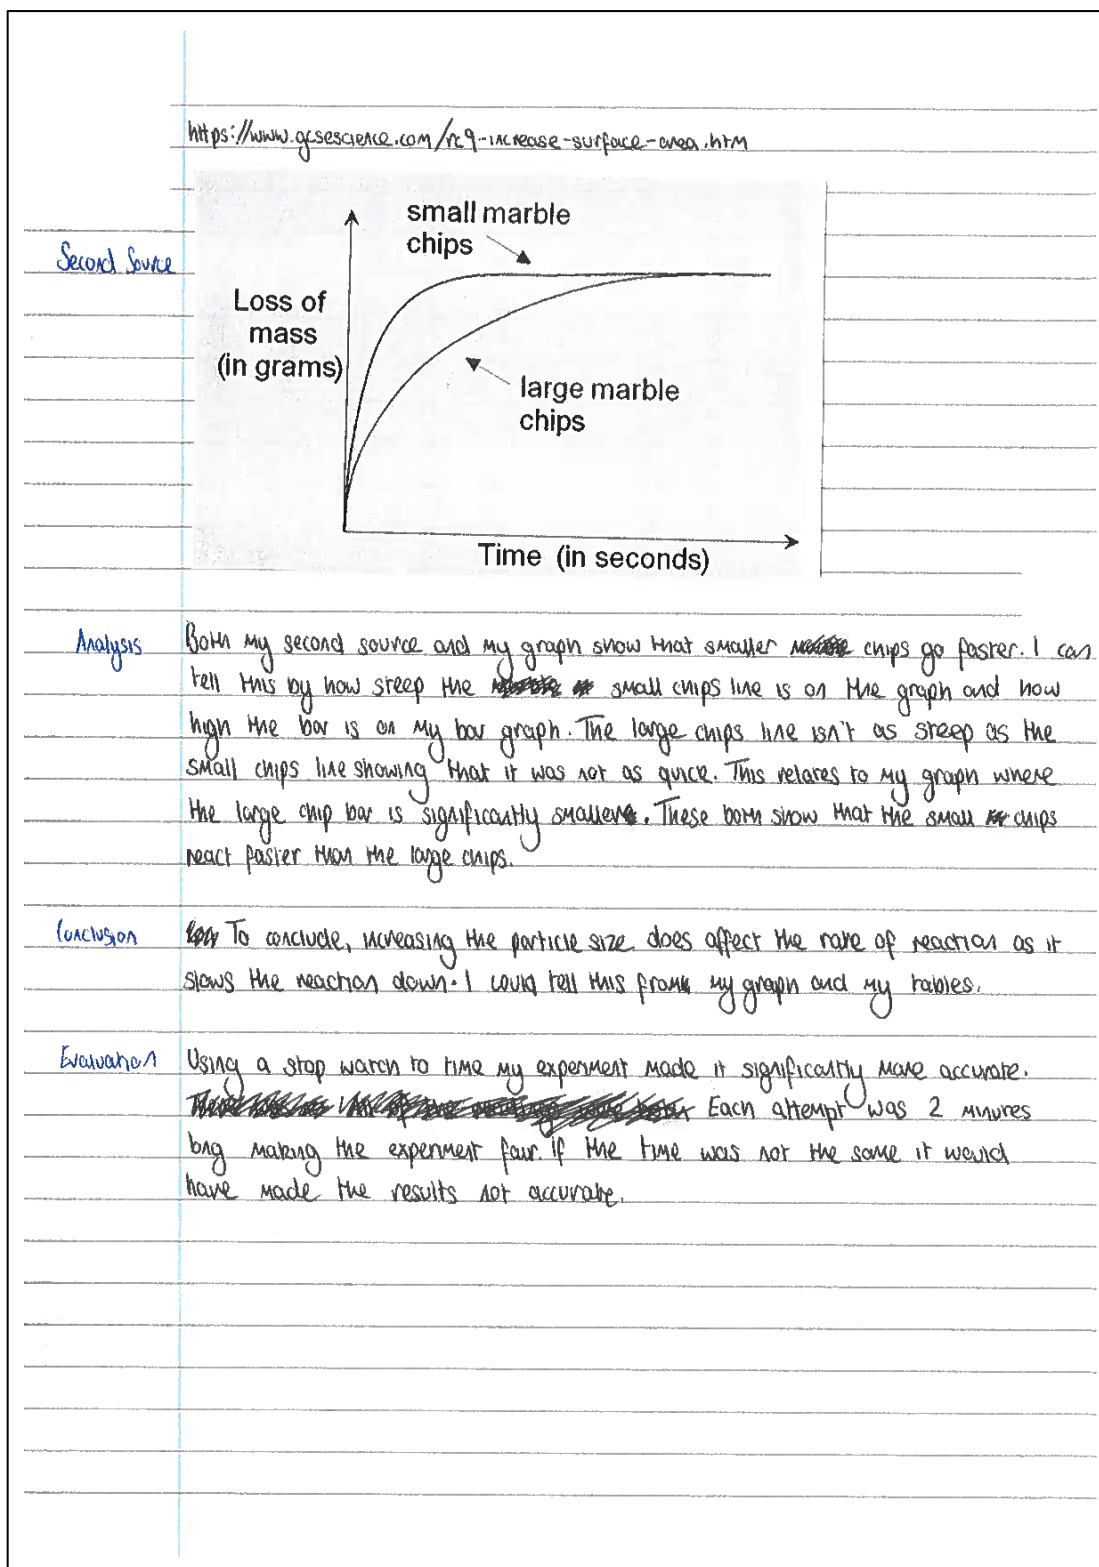 https://www.gcsescience.com/rc9-increase-surface-area.htm
small marble
chips
Second Source
Loss of
mass
(in grams)
large marble
chips
Time (in seconds)
Analysis Both my second source and my graph show that smaller chips go faster. I can
tell this by how steep the small chips line is on the graph and how
high the bar is on my bar graph. The large chips line isn't as steep as the
small chips line showing that it was not as quick. This relates to my graph where
the large chip bar is significantly smaller. These both show that the small chips
react faster than the large chips.
Conclusion To conclude, increasing the particle size does affect the rate of reaction as it
slows the reaction down. I could tell this from my graph and my tables.
Evaluation Using a stop watch to time my experiment made it significantly more accurate.
Each attempt was 2 minutes
long making the experiment fair. if the time was not the same it would
have made the results not accurate.